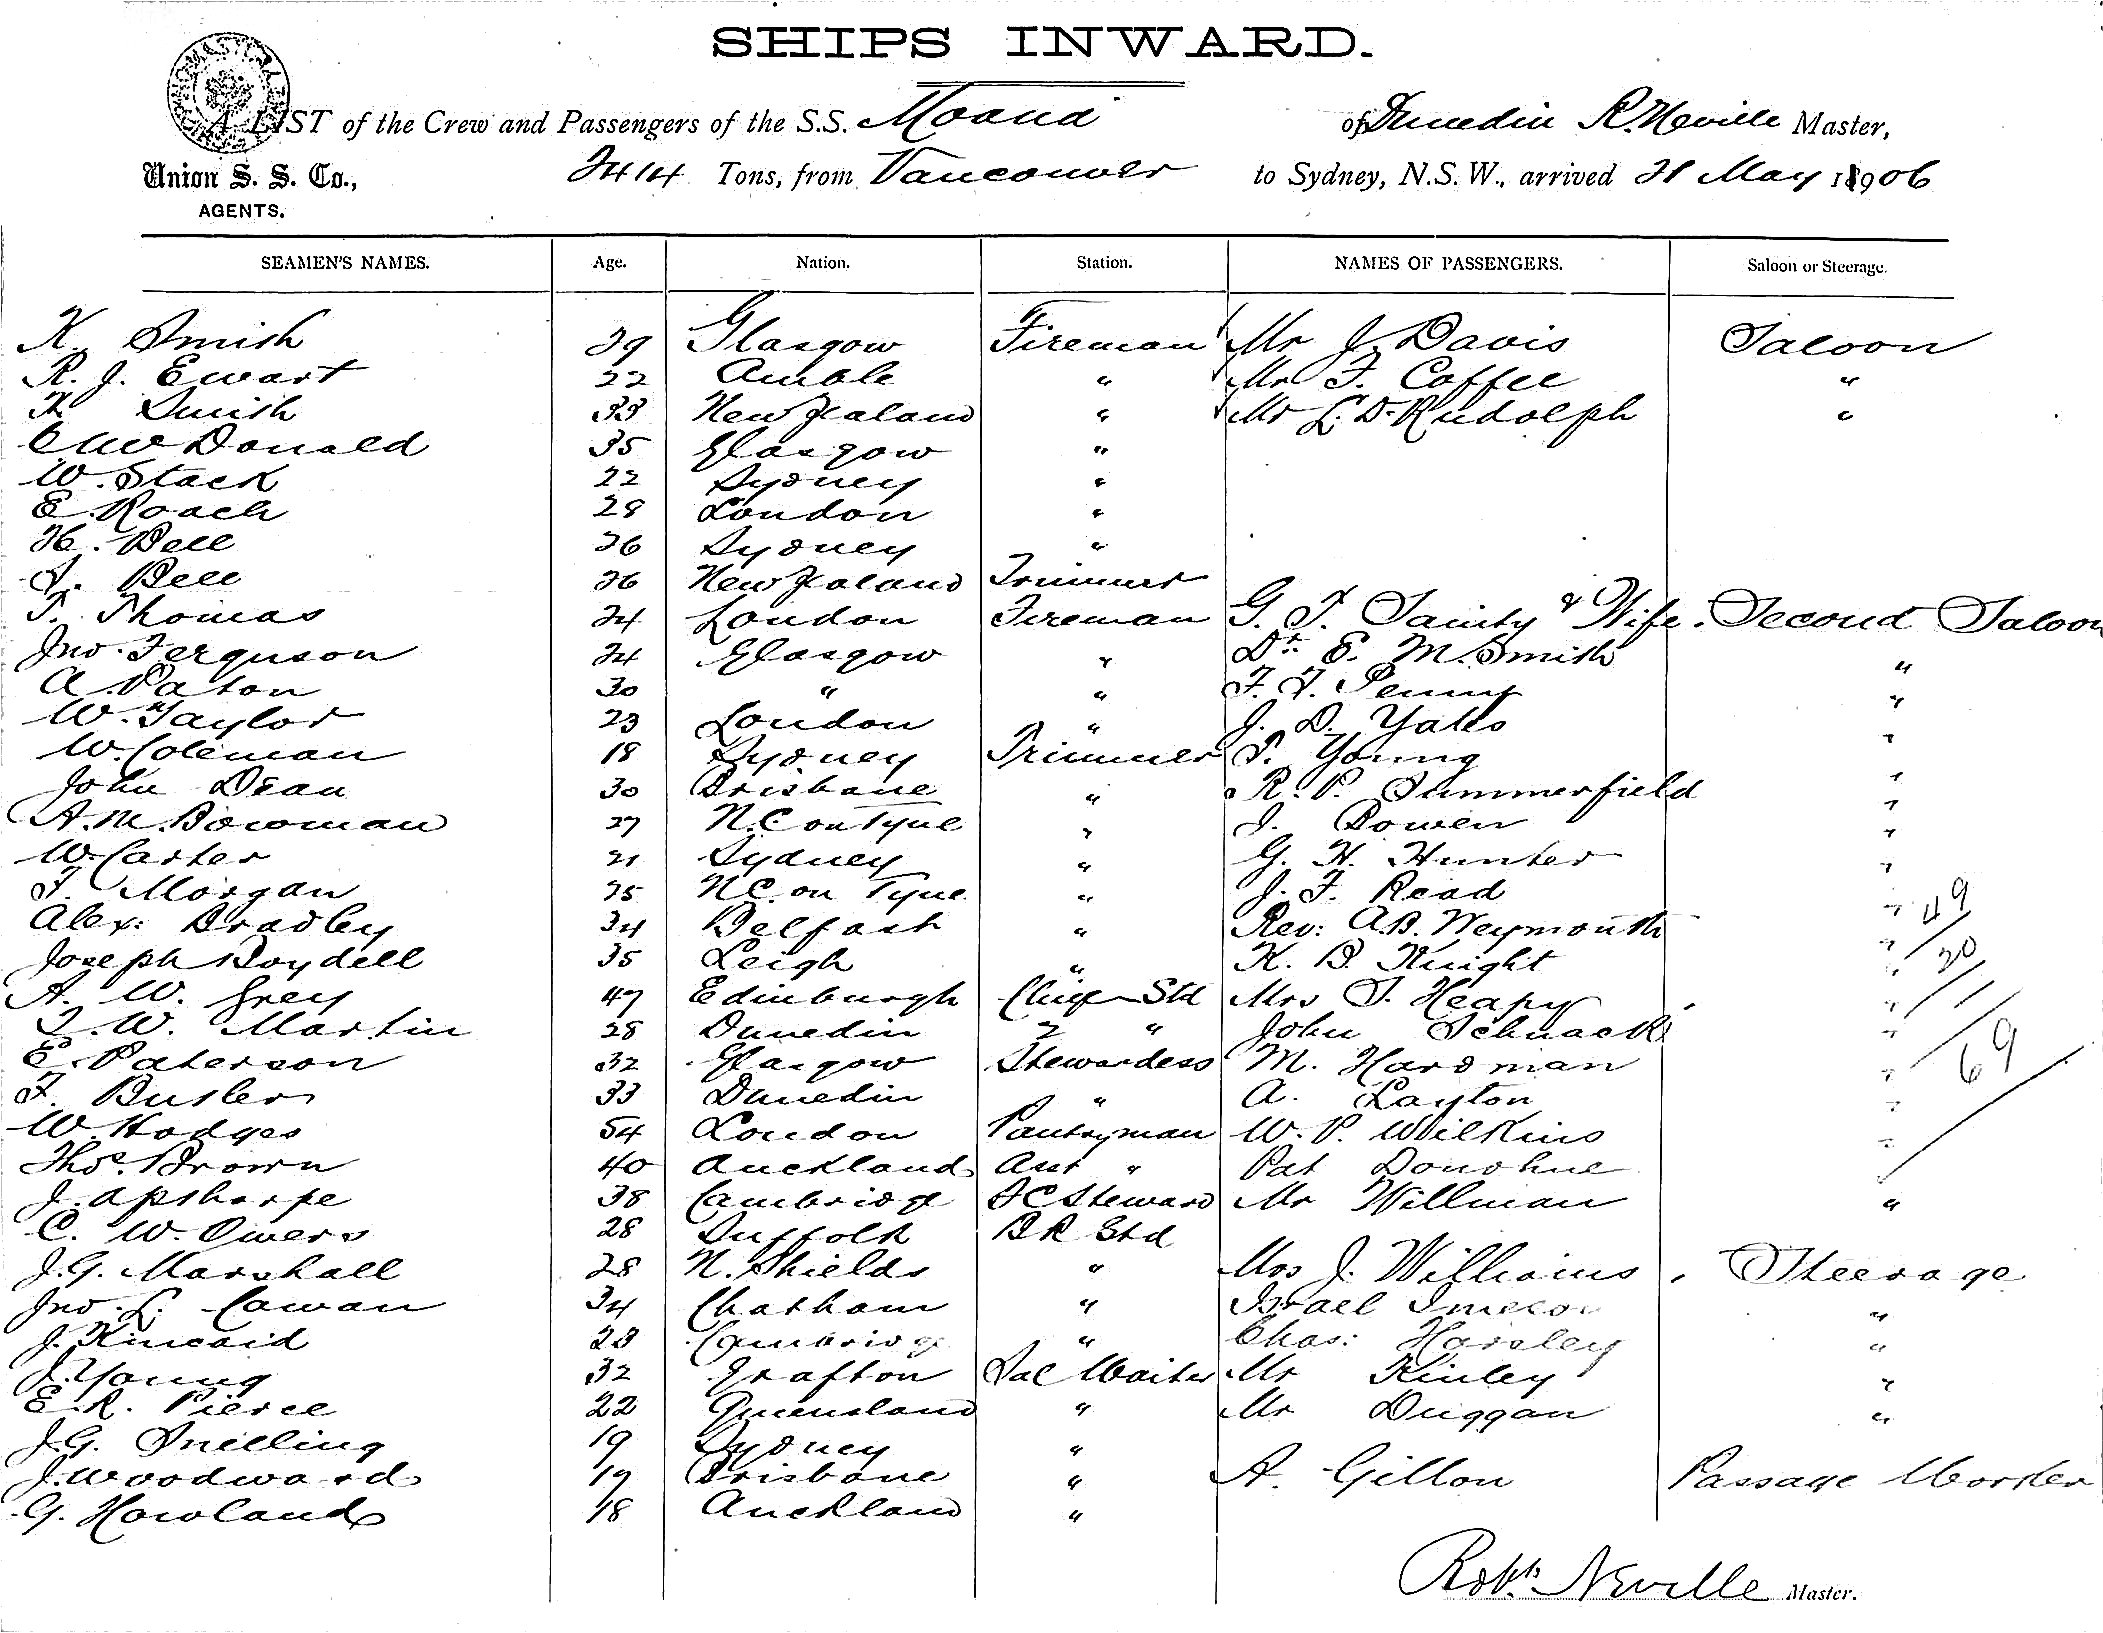 SHIPS INWARD.
A LIST of the Crew and Passengers of the S.S. Moana of Dunedin R. Neville Master,
Union S. S. Co., AGENTS.
2414 Tons, from Vancouver to Sydney, N.S.W., arrived 21 May 1906
SEAMEN'S NAMES. Age. Nation. Station. NAMES OF PASSENGERS. Saloon or Steerage.
K. Smith 39 Glasgow Fireman Mr J. Davis Saloon
R. J. Ewart 22 Amble " Mr F. Coffee "
Smith 33 New Zealand " Mr L. D. Rudolph "
C McDonald 35 Glasgow "
W. Stack 22 Sydney "
E. Roach 28 London "
H. Bell 26 Sydney "
J. Bell 26 New Zealand Trimmer
T. Thomas 24 London Fireman G. T. Sainty & Wife. Second Saloon
Jno. Ferguson 24 Glasgow " Dr. E. M. Smith "
A. Paton 30 " " F. J. Penny "
W. Taylor 23 London " J. D. Yates "
W. Coleman 18 Sydney Trimmer T. Young "
John Dean 30 Brisbane " R. P. Summerfield "
A. M. Bowman 27 N.C on Tyne " J. Bowen "
W. Carter 21 Sydney " G. H. Hunter "
F. Morgan 25 N.C. on Tyne " J. F. Read "
Alex: Bradley 34 Belfast " Rev: A.B. Weymouth " 49
Joseph Boydell 35 Leigh " K. B. Knight " 20
A. W. Grey 47 Edinburgh Chief Std Mrs S. Heapy "
J. W. Martin 28 Dunedin 2 " John Schnack "
E. Paterson 32 Glasgow Stewardess M. Hardman " 69
F. Butler 33 Dunedin " A. Layton "
W. Hodges 54 London Pantryman W. P. Wilkins "
Thos. Brown 40 Auckland Asst " Pat Donohue "
J. Apsharpe 38 Cambridge Steward Mr Willman "
C. W. Owers 28 Suffolk B R Std
J. G. Marshall 28 N. Shields " Mrs J. Williams Steerage
Jno. L. Cowan 34 Chatham " Israel "
J. Kincaid 23 Cambridge " Chas: Horsley "
J. Young 32 Grafton Sal Waiter Mr Kinley "
E. R. Pierce 22 Queensland " Mr Duggan "
J. G. Snelling 19 Sydney "
J. Woodward 19 Brisbane " A. Gillon Passage Worker
G. Howland 18 Auckland "
Robt. Neville Master.